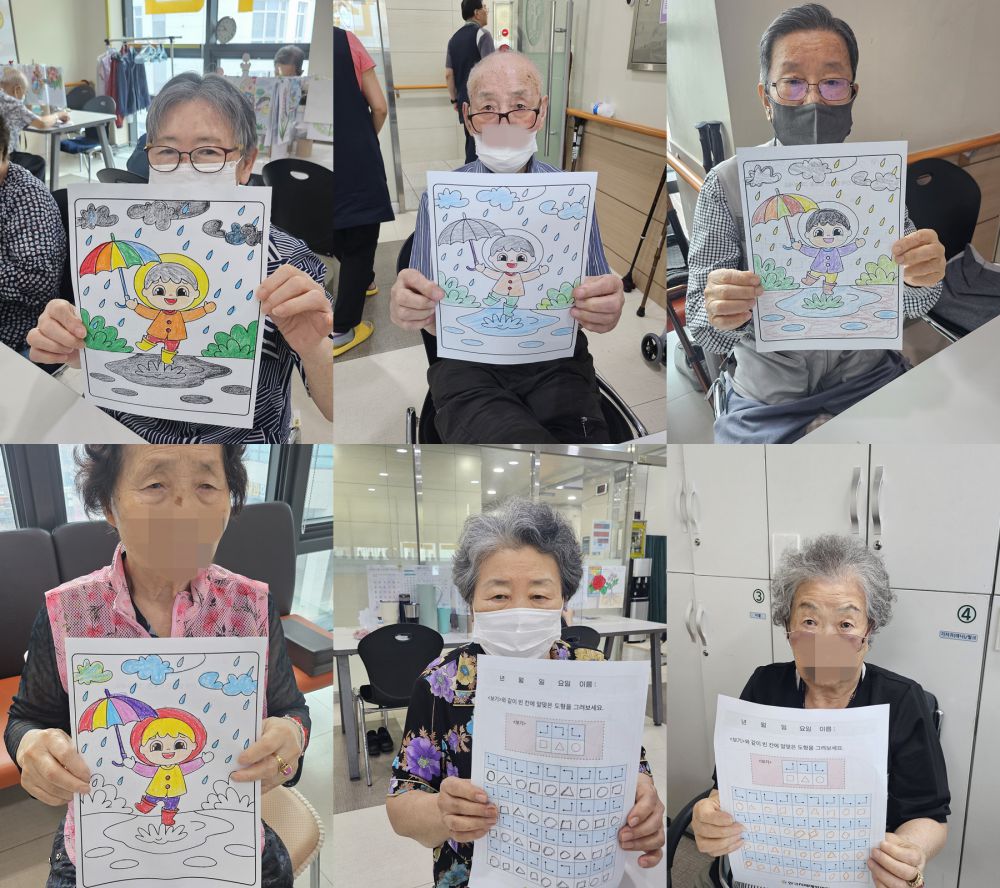 년 월 일 요일 이름 :
<보기>와 같이 빈 칸에 알맞은 도형을 그려보세요.
<보기>
③
④
년 월 일 요일 이름 :
<보기>와 같이 빈 칸에 알맞은 도형을 그려보세요.
<보기>